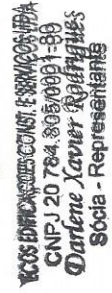 YCOS EDIFICAÇOES CONST. E SERVIÇOS LTDA
CNPJ 20 784.805/0001-89
Darlene Xavier Rodrigues
Sócia - Representante